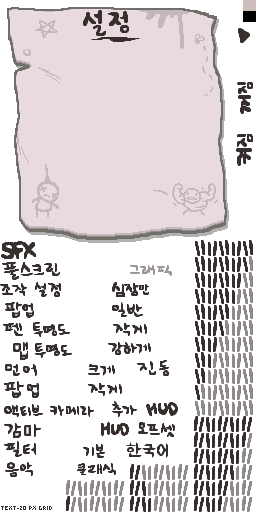 설정
SFX
풀스크린 그래픽
조각 설정 심장만
팝업 일반
펜 투명도 작게
맵 투명도 강하게
언어 크게 진동
팝업 작게
액티브 카메라 추가 HUD
감마 HUD 오프셋
필터 기본 한국어
음악 클래식
TEXT-20 PX GRID